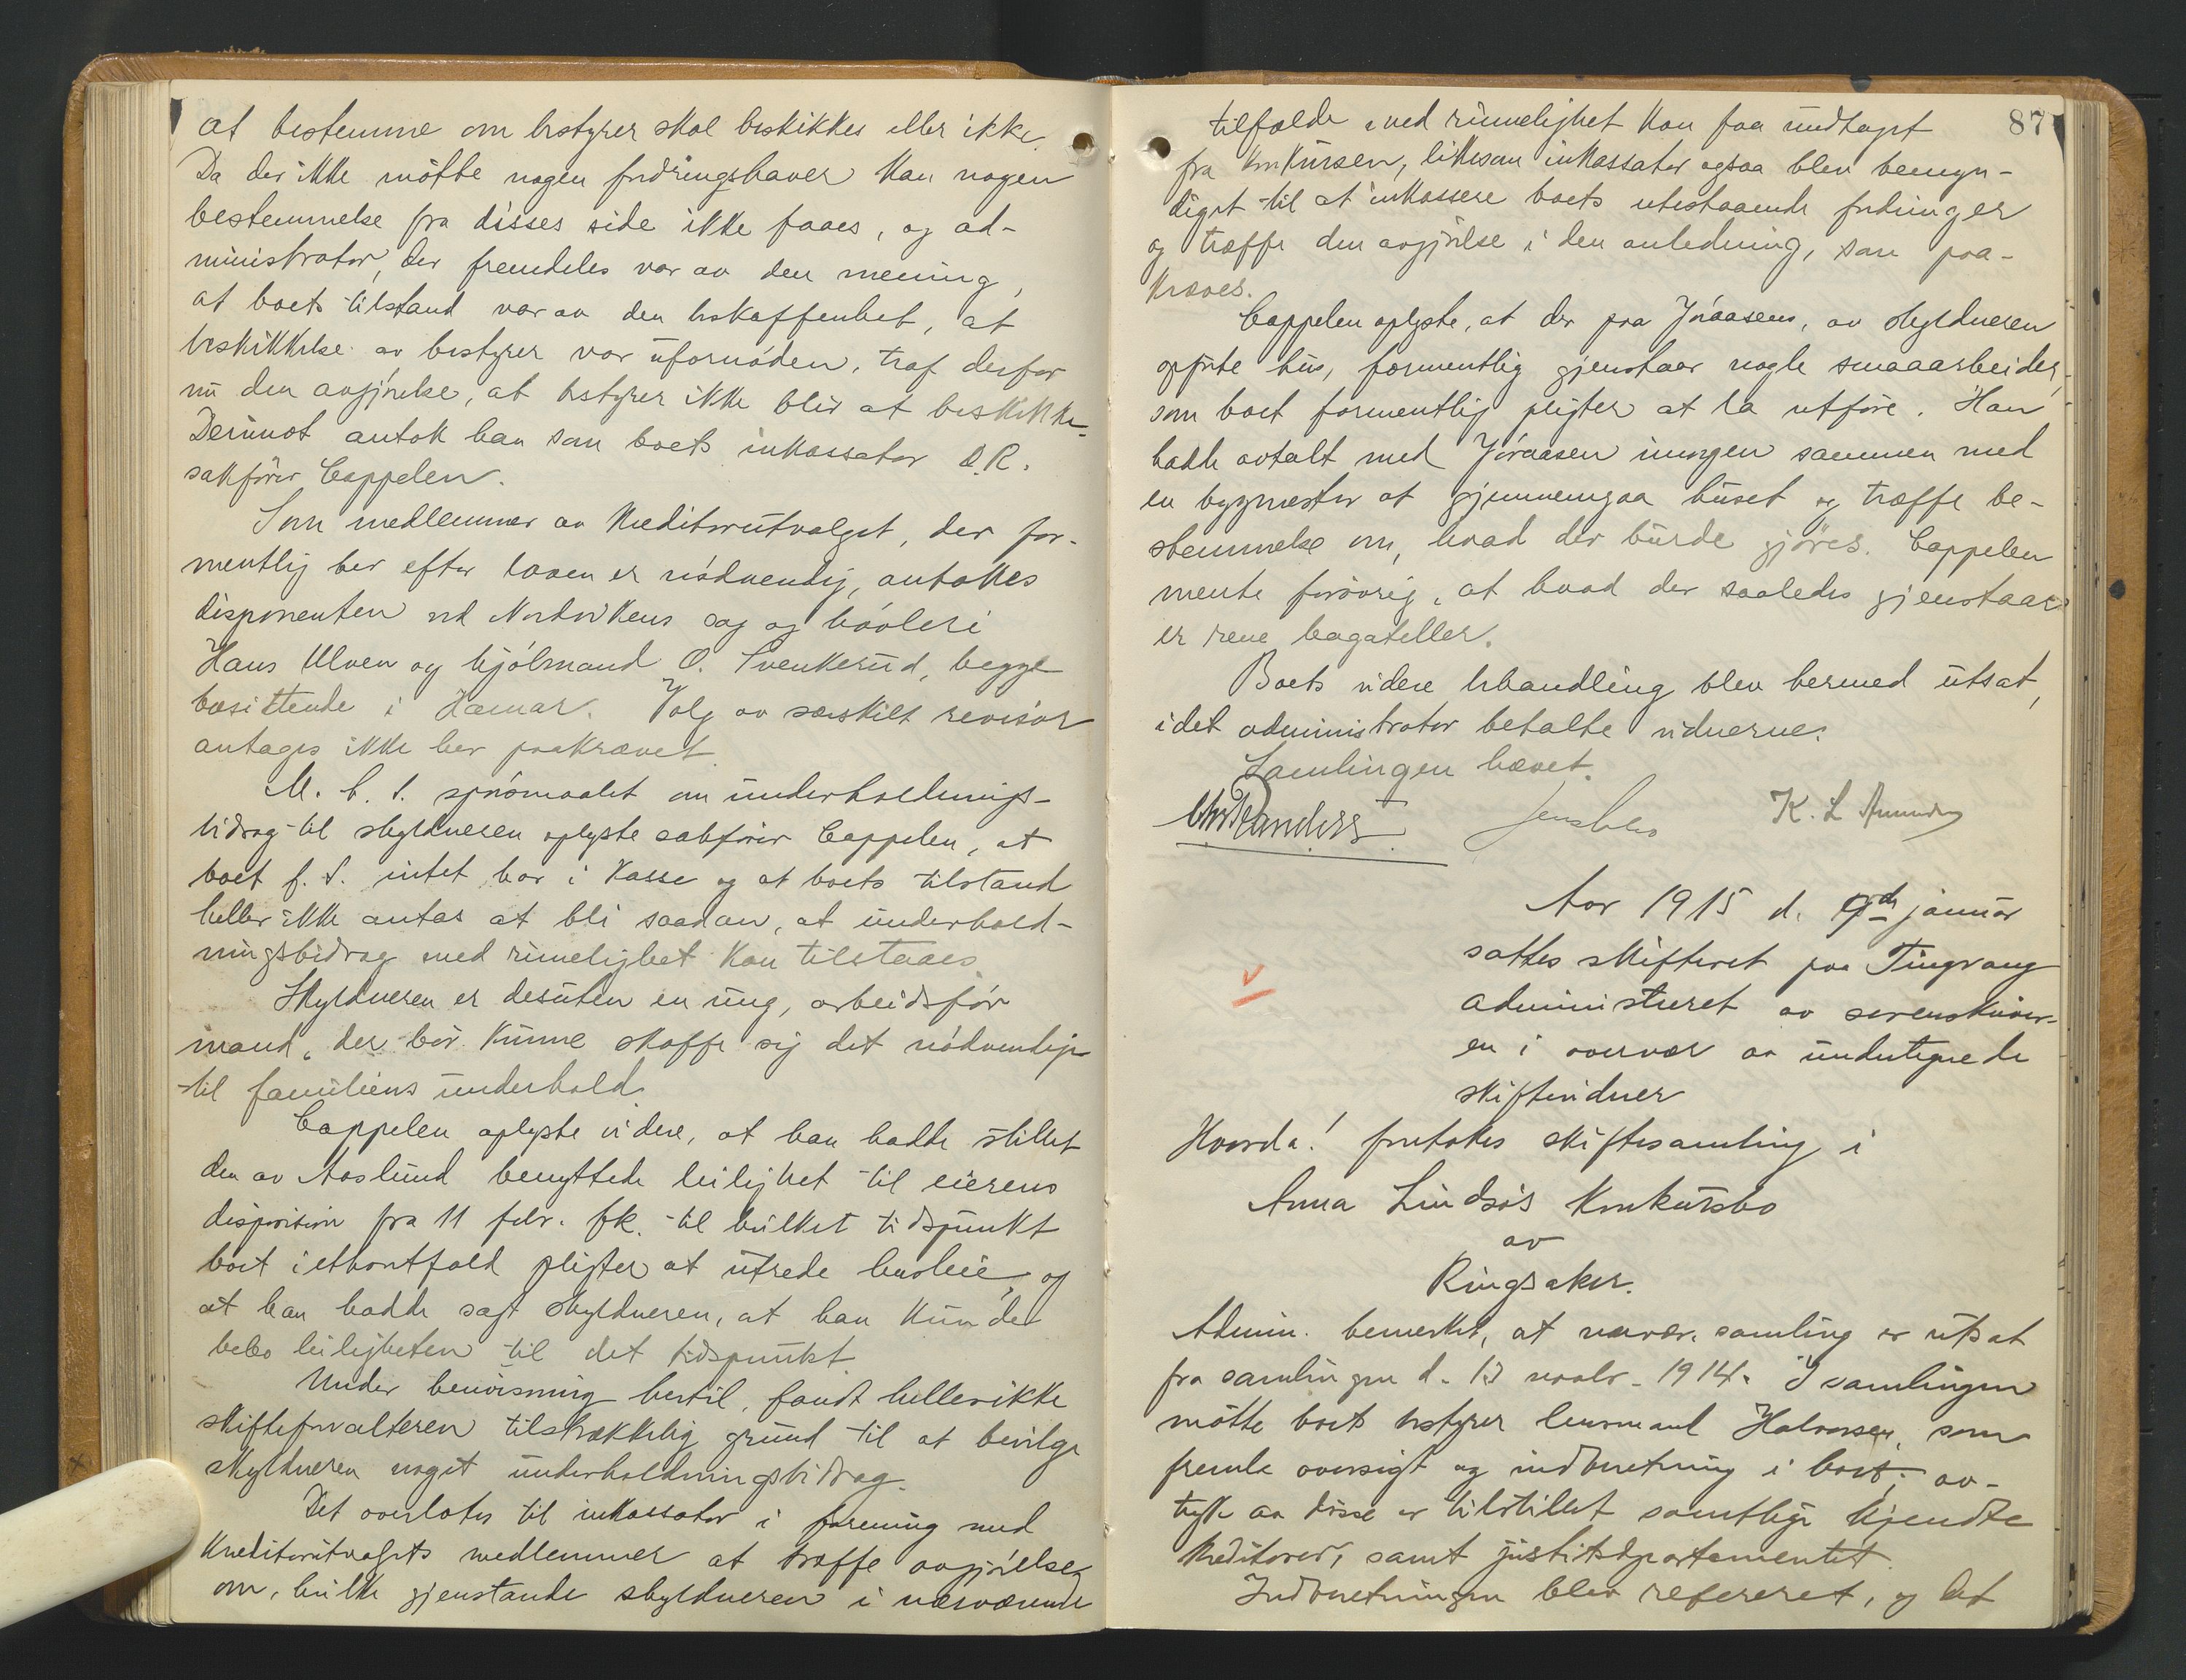 at bestemme om bestyrer skal beskikkes eller ikke.
Da der ikke mötte nogen fordringshaver kan nogen
bestemmelse fra disses side ikke faaes, og ad-
ministrator, der fremdeles var av den mening,
at boets tilstand var av den beskaffenhet, at
beskikkelse av bestyrer var ufornöden, traf derfor
nu den avgjörelse, at bestyrer ikke blir at beskikke.
Derimot antok han som boets inkassator O.R.
sakförer Cappelen.
Som medlemmer av kreditorutvalget, der for-
mentlig her efter loven er nödvendig, antokes
disponenten ved Nordvikens sag og hövleri
Hans Ulven og hjólmand O. Svenkerud, begge
bosittende i Hamar. Valg av særskilt revisor
antages ikke her paakrævet.
M. h. t. spörsmaalet om underholdnings-
bidrag til skyldneren oplyste sakförer Cappelen, at
boet f. t. intet har i kasse og at boets tilstand
heller ikke antas at bli saadan, at underhold-
ningsbidrag med rimelighet kan tilstaaes.
Skyldneren er desuten en ung, arbeidsför
mand, der bör kunne skaffe sig det nödvendige
til familiens underhold.
Cappelen oplyste videre, at han hadde stillet
den av Aaslund benyttede leilighet til eierens
disposition fra 11 febr. fk. til hvilket tidspunkt
boet i ethvertfald pligter at utrede husleie, og
at han hadde sagt skyldneren, at han kunde
bebo leiligheten til det tidspunkt.
Under henvisning hertil, fandt heller ikke
skifteforvalteren tilstrækkelig grund til at bevilge
skyldneren noget underholdningsbidrag.
Det overlates til inkassator i forening med
kreditorutvalgets medlemmer at træffe avgjörelse
om, hvilke gjenstande skyldneren i nærværende
87
tilfælde med rimelighet kan faa undtaget
fra konkursen, likesom inkassator ogsaa blev bemyn-
diget til at inkassere boets utestaaende fordringer
og træffe den avgjörelse i den anledning, som paa-
kræves.
Cappelen oplyste, at der paa Jöraasens, av skyldneren
opförte hus, formentlig gjenstaar nogle smaaarbeider,
som boet formentlig pligter at la utföre. Han
hadde avtalt med Jöraasen imorgen sammen med
en bygmester at gjennemgaa huset og træffe be-
stemmelse om, hvad der burde gjöres. Cappelen
mente forövrig, at hvad der saaledes gjenstaar
er rene bagateller.
Boets videre behandling blev hermed utsat,
idet administrator betalte vidnerne.
Samlingen hævet.
K. L
Aar 1915 d. 9de januar
sattes skifteret paa Tingvang
administreret av sorenskriver-
en i overvær av undertegnede
skiftevidner
Hvorda! foretokes skiftesamling i
Anna Lindsös konkursbo
av
Ringsaker.
Admin. bemerket, at nærvær. samling er utsat
fra samlingen d. 13 novbr. 1914. I samlingen
mötte boets bestyrer lensmand Halvorsen, som
fremla oversigt og indberetning i boet; av-
tryk av disse er tilstillet samtlige kjendte
kreditorer, samt justitsdepartementet.
Indberetningen blev refereret, og det